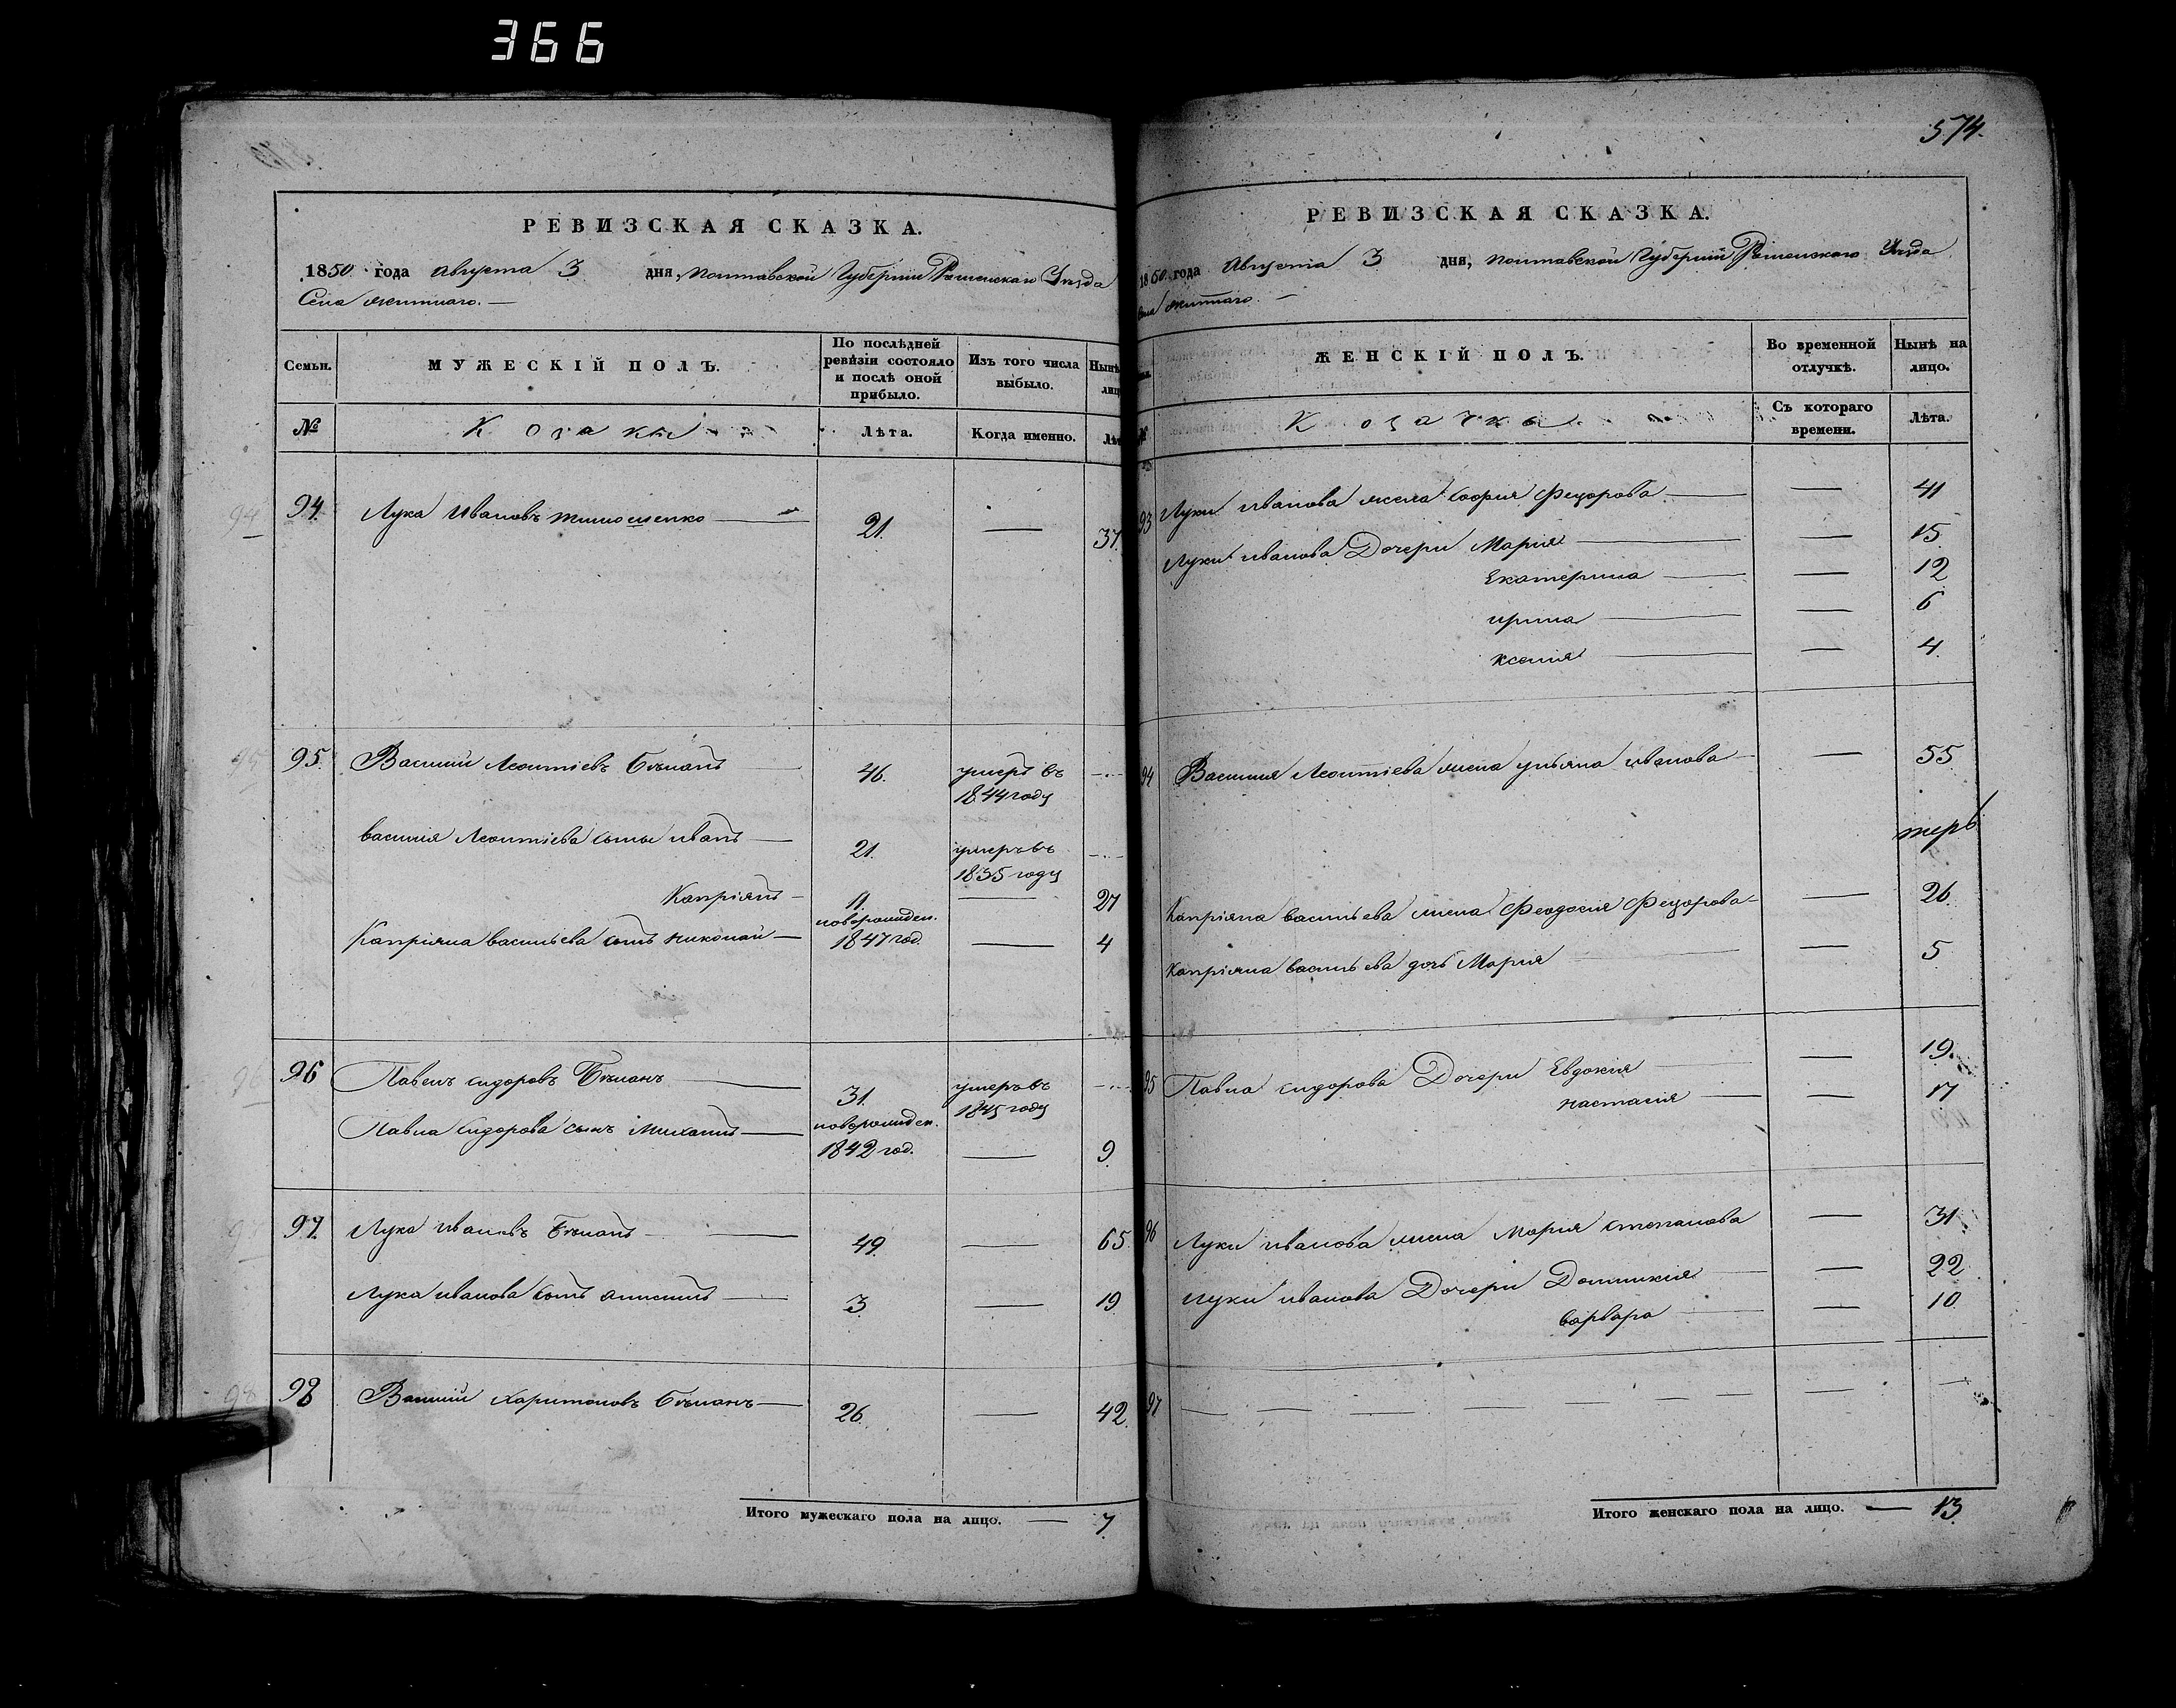 366
574.
РЕВИЗСКАЯ СКАЗКА.
1850 года Августа 3 дня, Полтавской Губернии Роменскаго Уезда
Села житнаго. —
Семьи.
МУЖЕСКІЙ ПОЛЪ.
По послѣдней ревизіи состояло и послѣ оной прибыло.
Изъ того числа выбыло.
Нынѣ
№
Козаки
Лѣта.
Когда именно.
94. Лука Ивановъ Тимошенко — 21. — 37.
95. Василій Леонтіевъ Бѣланъ — 46. умеръ въ 1844 году
василія Леонтіева сыны иванъ — 21. умеръ въ 1835 году
Капріянъ — 11. — 27
Капріяна васильева сынъ николай — новорожден. 1847 год. — 4
96 Павелъ сидоровъ Бѣланъ — 31. умеръ въ 1845 году
Павла Сидорова сынъ Михаилъ — новорожден. 1842 год. — 9.
97. Лука ивановъ Бѣланъ — 49. — 65.
Лука иванова сынъ анисимъ — 3. — 19
98 Василий Харитоновъ Бѣланъ — 26. — 42.
Итого мужескаго пола на лицо. — 7.
РЕВИЗСКАЯ СКАЗКА.
1850 года Августа 3 дня, полтавской Губерніи Роменскаго Уезда
житнаго. —
ЖЕНСКІЙ ПОЛЪ.
Во временной отлучкѣ.
Нынѣ на лицо.
Козачки
Съ котораго времени.
Лѣта.
93 Луки иванова жена софия Федорова — — 41
Луки иванова Дочери Мария — — 15
Екатерина — — 12
ирина — — 6
ксения — — 4.
94 Василия Леонтіева жена ульяна иванова — 55
Капріяна васильева жена Феодосия Федорова — — 26
Капріяна васильева дочь Мария — — 5
95 Павла сидорова Дочери Евдокия — — 19.
настасия — — 17
96 Луки иванова жена Мария степанова — 31
Луки иванова Дочери Домникия — — 22
варвара — — 10.
97 — — — — — — — —
Итого женскаго пола на лицо. — 13.